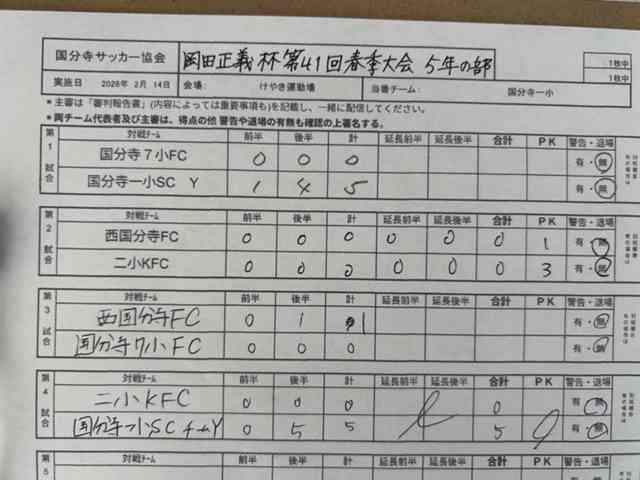 国分寺サッカー協会 岡田正義杯第41回春季大会 5年の部 1枚中 1枚中
実施日 2026年 2月 14日 会場: けやき運動場 当番チーム: 国分寺一小
*主審は「審判報告書」(内容によっては重要事項も)を記載し、一緒に配信してください。
*両チーム代表者及び主審は、得点の他 警告や退場の有無も確認の上署名する。
第1試合 対戦チーム 前半 後半 計 延長前半 延長後半 合計 PK 警告・退場
国分寺7小FC 0 0 0 有・無
国分寺一小SC Y 1 4 5 有・無
第2試合 対戦チーム 前半 後半 計 延長前半 延長後半 合計 PK 警告・退場
西国分寺FC 0 0 0 0 0 0 1 有・無
二小KFC 0 0 0 0 0 0 3 有・無
第3試合 対戦チーム 前半 後半 計 延長前半 延長後半 合計 PK 警告・退場
西国分寺FC 0 1 1 有・無
国分寺7小FC 0 0 0 有・無
第4試合 対戦チーム 前半 後半 計 延長前半 延長後半 合計 PK 警告・退場
二小KFC 0 0 0 0 有・無
国分寺一小SCチームY 0 5 5 5 有・無
第5 対戦チーム 前半 後半 計 延長前半 延長後半 合計 PK 警告・退場